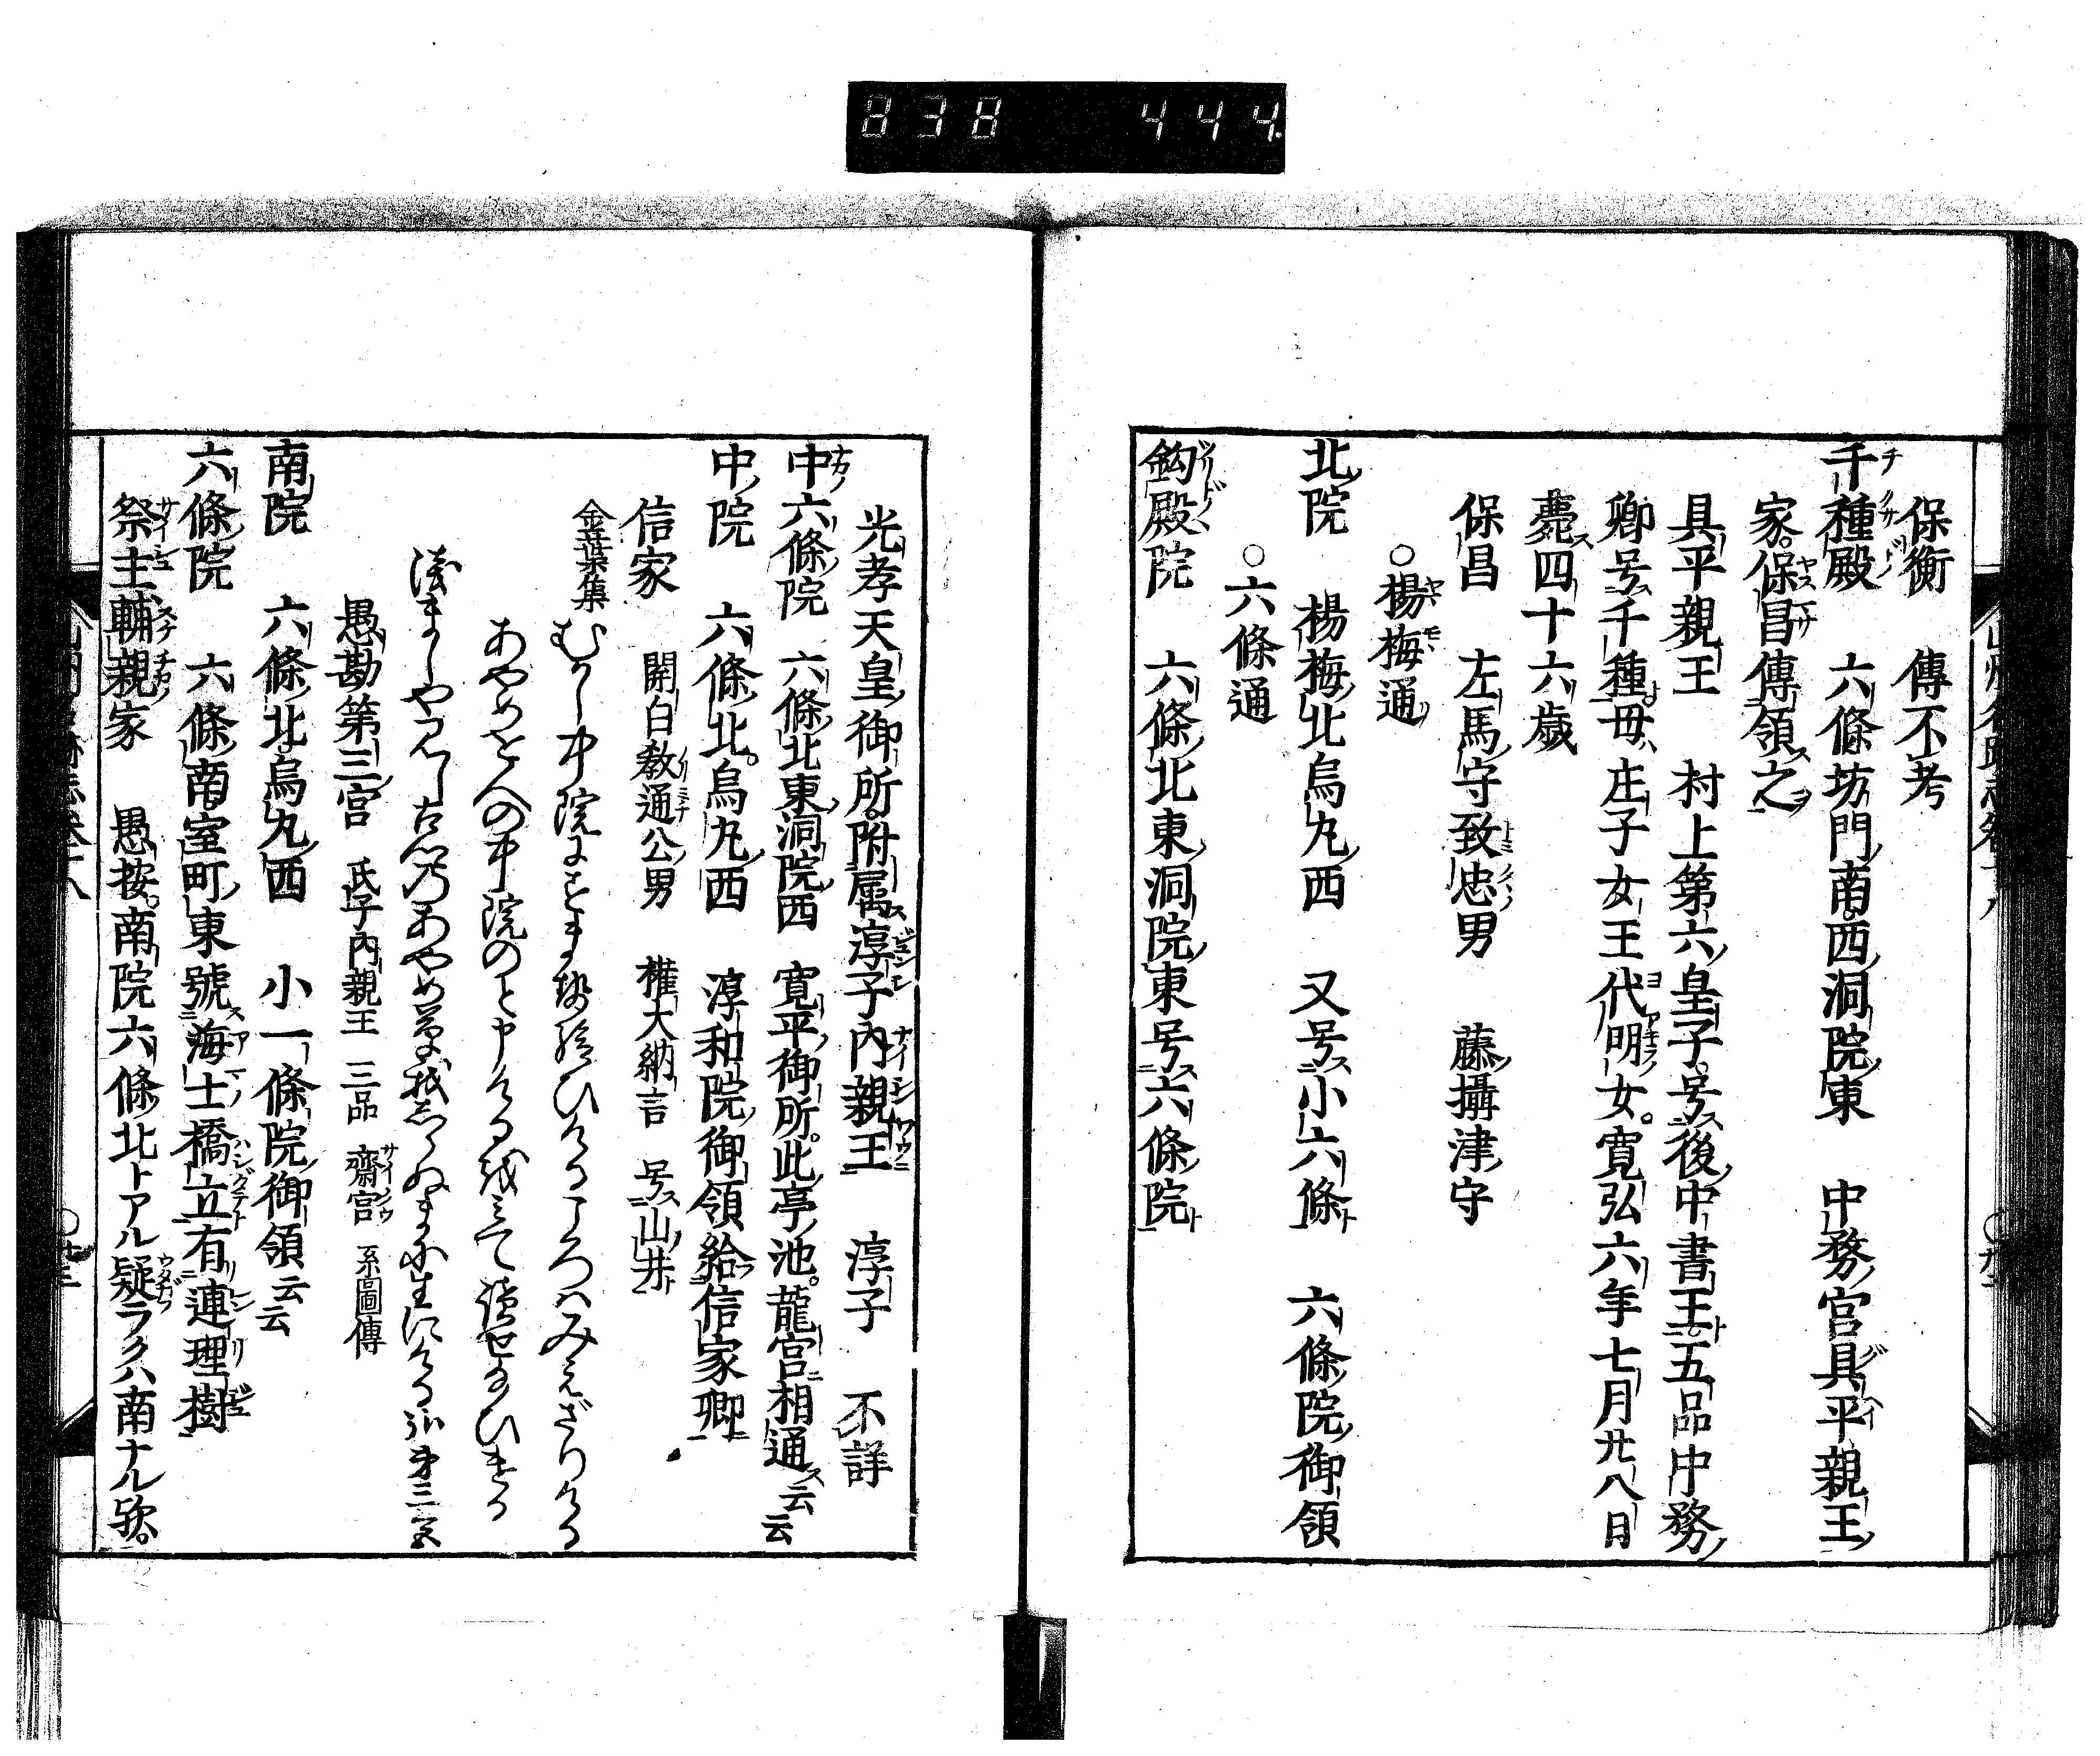 838 444
保衡 傳不考
千種殿 六條坊門南西洞院東 中務宮具平親王
家保昌傳領之
具平親王 村上第六皇子号後中書王五品中務
卿号千種母庄子女王代明女寛弘六年七月廿八日
薨四十六歳
保昌 左馬守致忠男 藤攝津守
○楊梅通
北院 楊梅北烏丸西 又号小六條 六條院御領
○六條通
釣殿院 六條北東洞院東号六條院
光孝天皇御所附属淳子内親王 淳子 不詳
中六條院 六條北東洞院西 寛平御所此亭池龍宮相通云云
中院 六條北烏丸西 淳和院御領給信家卿
信家 関白教通公男 權大納言 号山井
金葉集 むかし中院にすませ給ひけるころハみえざりける
あやめを人の中院のと申けるをみて讀せ給ひける
浅ましやみし古のあやめ草
愚勘第三宮 氏子内親王 三品 齋宮 系圖傳
南院 六條北烏丸西 小一條院御領云云
六條院 六條南室町東號海士橋立有連理樹
祭主輔親家 愚按南院六條北トアル疑ラクハ南ナル歟